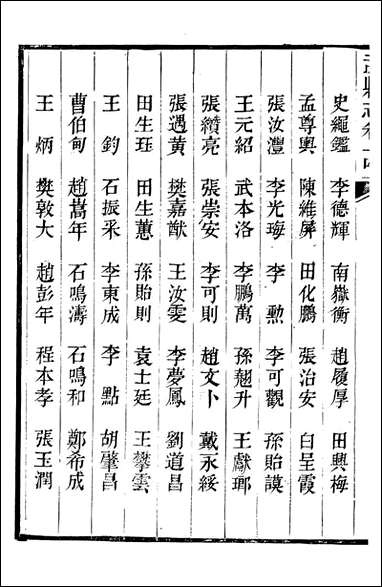 史繩鑑 李德輝 南嶽衡 趙履厚 田興梅
孟尊輿 陳維屏 田化鵬 張治安 白呈霞
張汝灃 李光璿 李勲 李可觀 孫貽謨
王元紹 武本洛 李鵬萬 孫翹升 王獻瑯
張纘亮 張崇安 李可則 趙文卜 戴永綏
張遇黄 樊嘉猷 王汝雯 李夢鳳 劉道昌
田生珏 田生蕙 孫貽則 袁士廷 王攀雲
王鈞 石振采 李東成 李點 胡肇昌
曹伯甸 趙嵩年 石鳴濤 石鳴和 鄭希成
王炳 樊敦大 趙彭年 程本孝 張玉潤